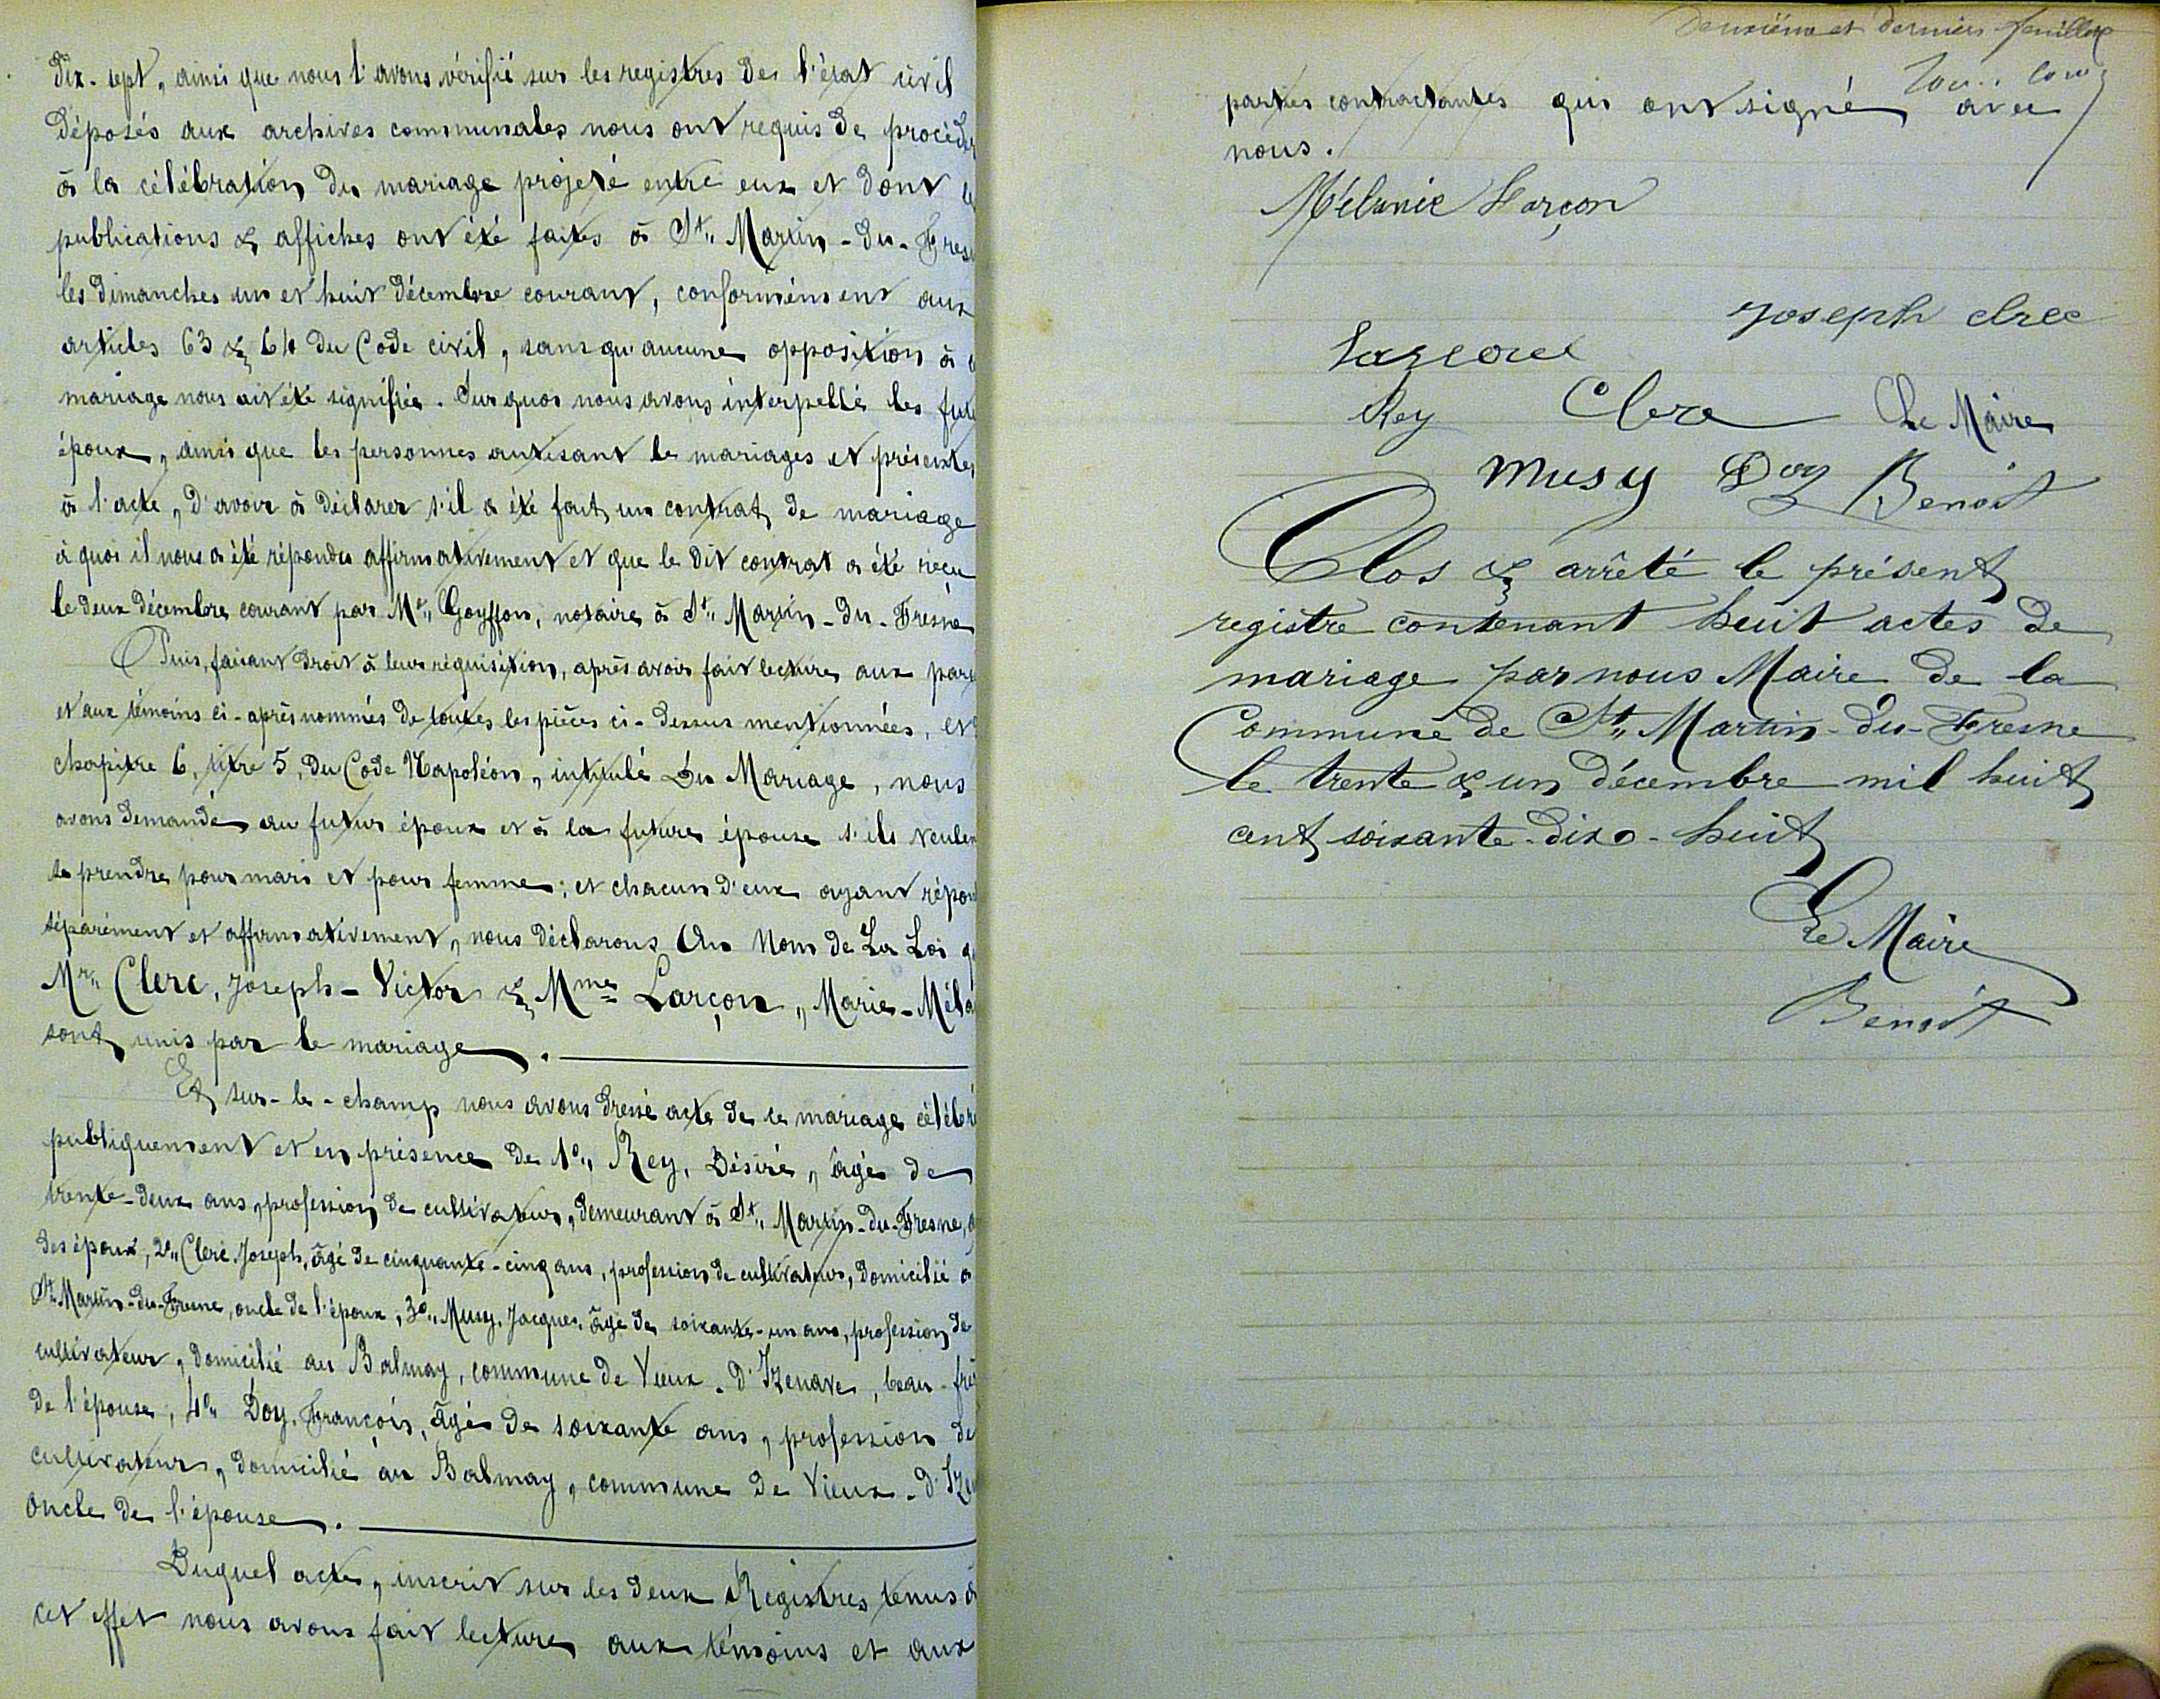 dix-sept, ainsi que nous l'avons vérifié sur les registres de l'état civil
déposés aux archives communales nous ont requis de procéder
à la célébration du mariage projeté entre eux et dont les
publications & affiches ont été faites à St, Martin-du-Fresne
les dimanches un et huit décembre courant, conformément aux
articles 63 & 64 du Code civil, sans qu'aucune opposition à
mariage nous ait été signifiée. Sur quoi nous avons interpellé les
époux, ainsi que les personnes autisant le mariages et présentes
à l'acte, d'avoir à déclarer s'il a été fait un contrat de mariage
à quoi il nous a été répondu affirmativement et que le dit contrat a été reçu
le deux décembre courant par Mr, Goyffon, notaire à St, Martin-du-Fresne
Puis, faisant droit à leur réquisition, après avoir fait lecture aux
et aux témoins ci-après nommés de toutes les pièces ci-dessus mentionnées, et
chapitre 6, titre 5, du Code Napoléon, intitulé Du Mariage, nous
avons demandé au futur époux et à la future épouse s'ils veulen
se prendre pour mari et pour femme; et chacun d'eux ayant répon
séparément et affirmativement, nous déclarons Au Nom de La Loi q
Mr, Clerc, Joseph-Victor & Mme Larçon, Marie-Méla
sont unis par le mariage.
Et sur-le-champ nous avons dressé acte de ce mariage célébré
publiquement et en présence de 1º, Rey, Désiré, âgé de
trente-deux ans, profession de cultivateur, demeurant à St, Martin-du-Fresne,
des époux, 2º, Clerc Joseph, âgé de cinquante-cinq ans, profession de cultivateur, domicilié à
St Martin-du-Fresne, oncle de l'époux, 3º, Musy, Jacques, âgé de soixante-un ans, profession de
cultivateur, domicilié au Balmay, commune de Vieux-d'Izenave, beau-frè
de l'épouse, 4º, Doy, François, âgé de soixante ans, profession de
cultivateur, domicilié au Balmay, commune de Vieux-d'Ize
oncle de l'épouse.
Duquel acte, inscrit sur les deux Registres tenus à
cet effet nous avons fait lecture aux témoins et aux
Deuxième et dernier feuillet
parties contractantes qui ont signé avec
nous.
Mélanie Larçon
Joseph clrec
Rey Clerc Le Maire
Musy Doy Benoit
Clos & arrêté le présent
registre contenant huit actes de
mariage par nous Maire de la
Commune de St, Martin-du-Fresne
le trente & un décembre mil huit
cent soixante-dix-huit
Le Maire
Benoit